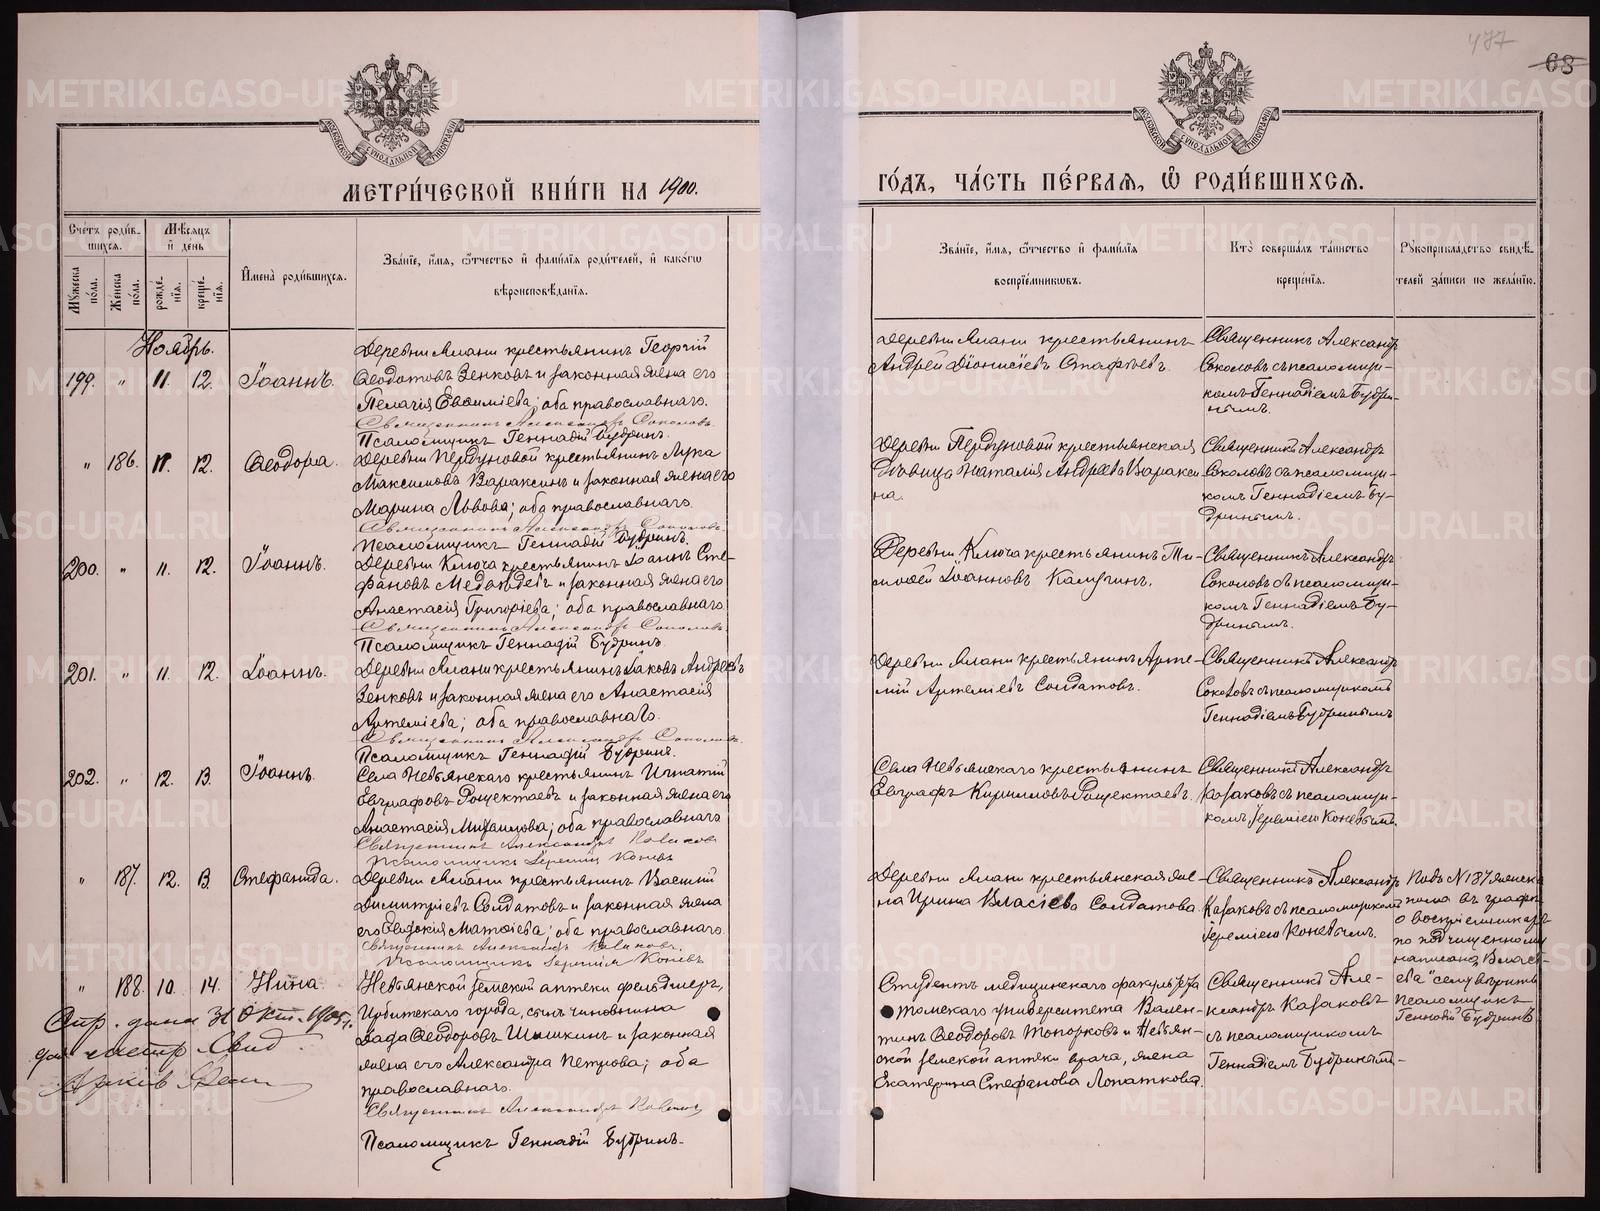 477
68
МОСКОВСКОЙ СѴНОДАЛЬНОЙ ТИПОГРАФІИ
МОСКОВСКОЙ СѴНОДАЛЬНОЙ ТИПОГРАФІИ
МЕТРИ́ЧЕСКОЙ КНИ́ГИ НА 1900.
ГО́ДЪ, ЧА́СТЬ ПЕ́РВАѦ, Ѡ҆ РОДИ́ВШИХСѦ.
Сче́тъ роди́в-
шихсѧ.
Мꙋ́жеска по́ла.
Же́нска по́ла.
Мѣ́сѧцъ
и҆ де́нь
рожде́-
нїѧ.
креще́-
нїѧ.
И҆мена̀ роди́вшихсѧ.
Зва́нїе, и҆́мѧ, ѻ҆́тчество и҆ фами́лїѧ роди́телей, и҆ како́гѡ
вѣроисповѣ́данїѧ.
Зва́нїе, и҆́мѧ, ѻ҆́тчество и҆ фами́лїѧ
воспрїе́мниковъ.
Кто̀ соверша́лъ та́инство
креще́нїѧ.
Рꙋкоприкла́дство свидѣ́-
телей за́писи по жела́нїю.
Ноябрь.
199. " 11. 12. Іоаннъ.
Деревни Ялани крестьянинъ Георгій
Ѳеодотовъ Зенковъ и законная жена его
Пелагія Евѳиміева; оба православнаго.
Священникъ Александръ Соколовъ.
Псаломщикъ Геннадій Будринъ.
Деревни Ялани крестьянинъ
Андрей Діонисіевъ Стафѣевъ.
Священникъ Александръ
Соколовъ съ псаломщи-
комъ Геннадіемъ Будри-
нымъ.
" 186. 11. 12. Ѳеодора.
Деревни Пердуновой крестьянинъ Лука
Максимовъ Вараксинъ и законная жена его
Марина Львова; оба православнаго.
Священникъ Александръ Соколовъ.
Псаломщикъ Геннадій Будринъ.
Деревни Пердуновой крестьянская
дѣвица Наталія Андреева Варакси-
на.
Священникъ Александръ
Соколовъ съ псаломщи-
комъ Геннадіемъ Бу-
дринымъ.
200. " 11. 12. Іоаннъ.
Деревни Ключа крестьянинъ Іоаннъ Сте-
фановъ Медвѣдевъ и законная жена его
Анастасія Григоріева; оба православнаго
Священникъ Александръ Соколовъ.
Псаломщикъ Геннадій Будринъ.
Деревни Ключа крестьянинъ Ти-
моѳей Іоанновъ Калугинъ.
Священникъ Александръ
Соколовъ съ псаломщи-
комъ Геннадіемъ Бу-
дринымъ.
201. " 11. 12. Іоаннъ.
Деревни Ялани крестьянинъ Іаковъ Андреевъ
Зенковъ и законная жена его Анастасія
Артеміева; оба православнаго.
Священникъ Александръ Соколовъ.
Псаломщикъ Геннадій Будринъ.
Деревни Ялани крестьянинъ Арте-
мій Артеміевъ Солдатовъ.
Священникъ Александръ
Соколовъ съ псаломщикомъ
Геннадіемъ Будринымъ
202. " 12. 13. Іоаннъ.
Села Невьянскаго крестьянинъ Игнатій
Евграфовъ Рощектаевъ и законная жена его
Анастасія Михаилова; оба православнаго
Священникъ Александръ Казаковъ
Псаломщикъ Іеремій Коневъ
Села Невьянскаго крестьянинъ
Евграфъ Кирилловъ Рощектаевъ.
Священникъ Александръ
Казаковъ съ псаломщи-
комъ Іереміею Коневымъ.
" 187. 12. 13. Стефанида.
Деревни Ялани крестьянинъ Василій
Димитріевъ Солдатовъ и законная жена
его Евдокія Матѳіева; оба православнаго.
Священникъ Александръ Казаковъ.
Псаломщикъ Іеремія Коневъ
Деревни Ялани крестьянская же-
на Ирина Власіева Солдатова.
Священникъ Александръ
Казаковъ съ псаломщикомъ
Іереміею Коневымъ.
Подъ № 187 женска
пола въ графѣ
о воспріемникахъ
по подчищенному
написано „Власі-
ева“ сему вѣрить
Псаломщикъ
Геннадій Будринъ
" 188. 10. 14. Нина.
Невьянской земской аптеки фельдшеръ,
Ирбитскаго города, сынъ чиновника
Ѳеодоровъ Шишкинъ и законная
жена его Александра Петрова; оба
православнаго.
Священникъ Александръ Казаковъ
Псаломщикъ Геннадій Будринъ.
Студентъ медицинскаго факультета
Томскаго университета Вален-
тинъ Ѳеодоровъ Топорковъ и Невьян-
ской земской аптеки врача, жена
Екатерина Стефанова Лопаткова.
Священникъ Але-
ксандръ Казаковъ
съ псаломщикомъ
Геннадіемъ Будринымъ.
Спр. дана 31 Окт. 1905 г.
METRIKI.GASO-URAL.RU